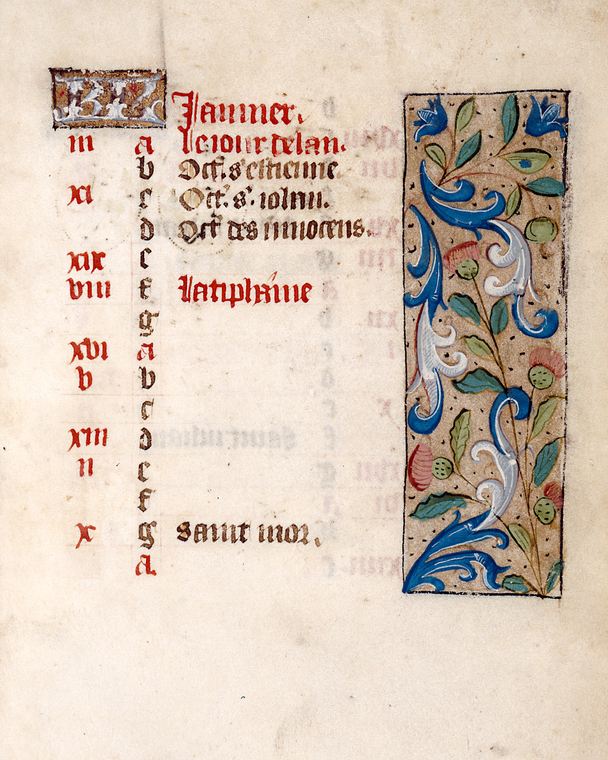 KL Januier.
iii a Le iour de lan.
b Oct. s' estienne.
xi c Oct. s'. iohan.
d Oct des innocens.
xix e
viii f La tiphaine
g
xvi a
v b
c
xiii d
ii e
f
x g saint mor.
a